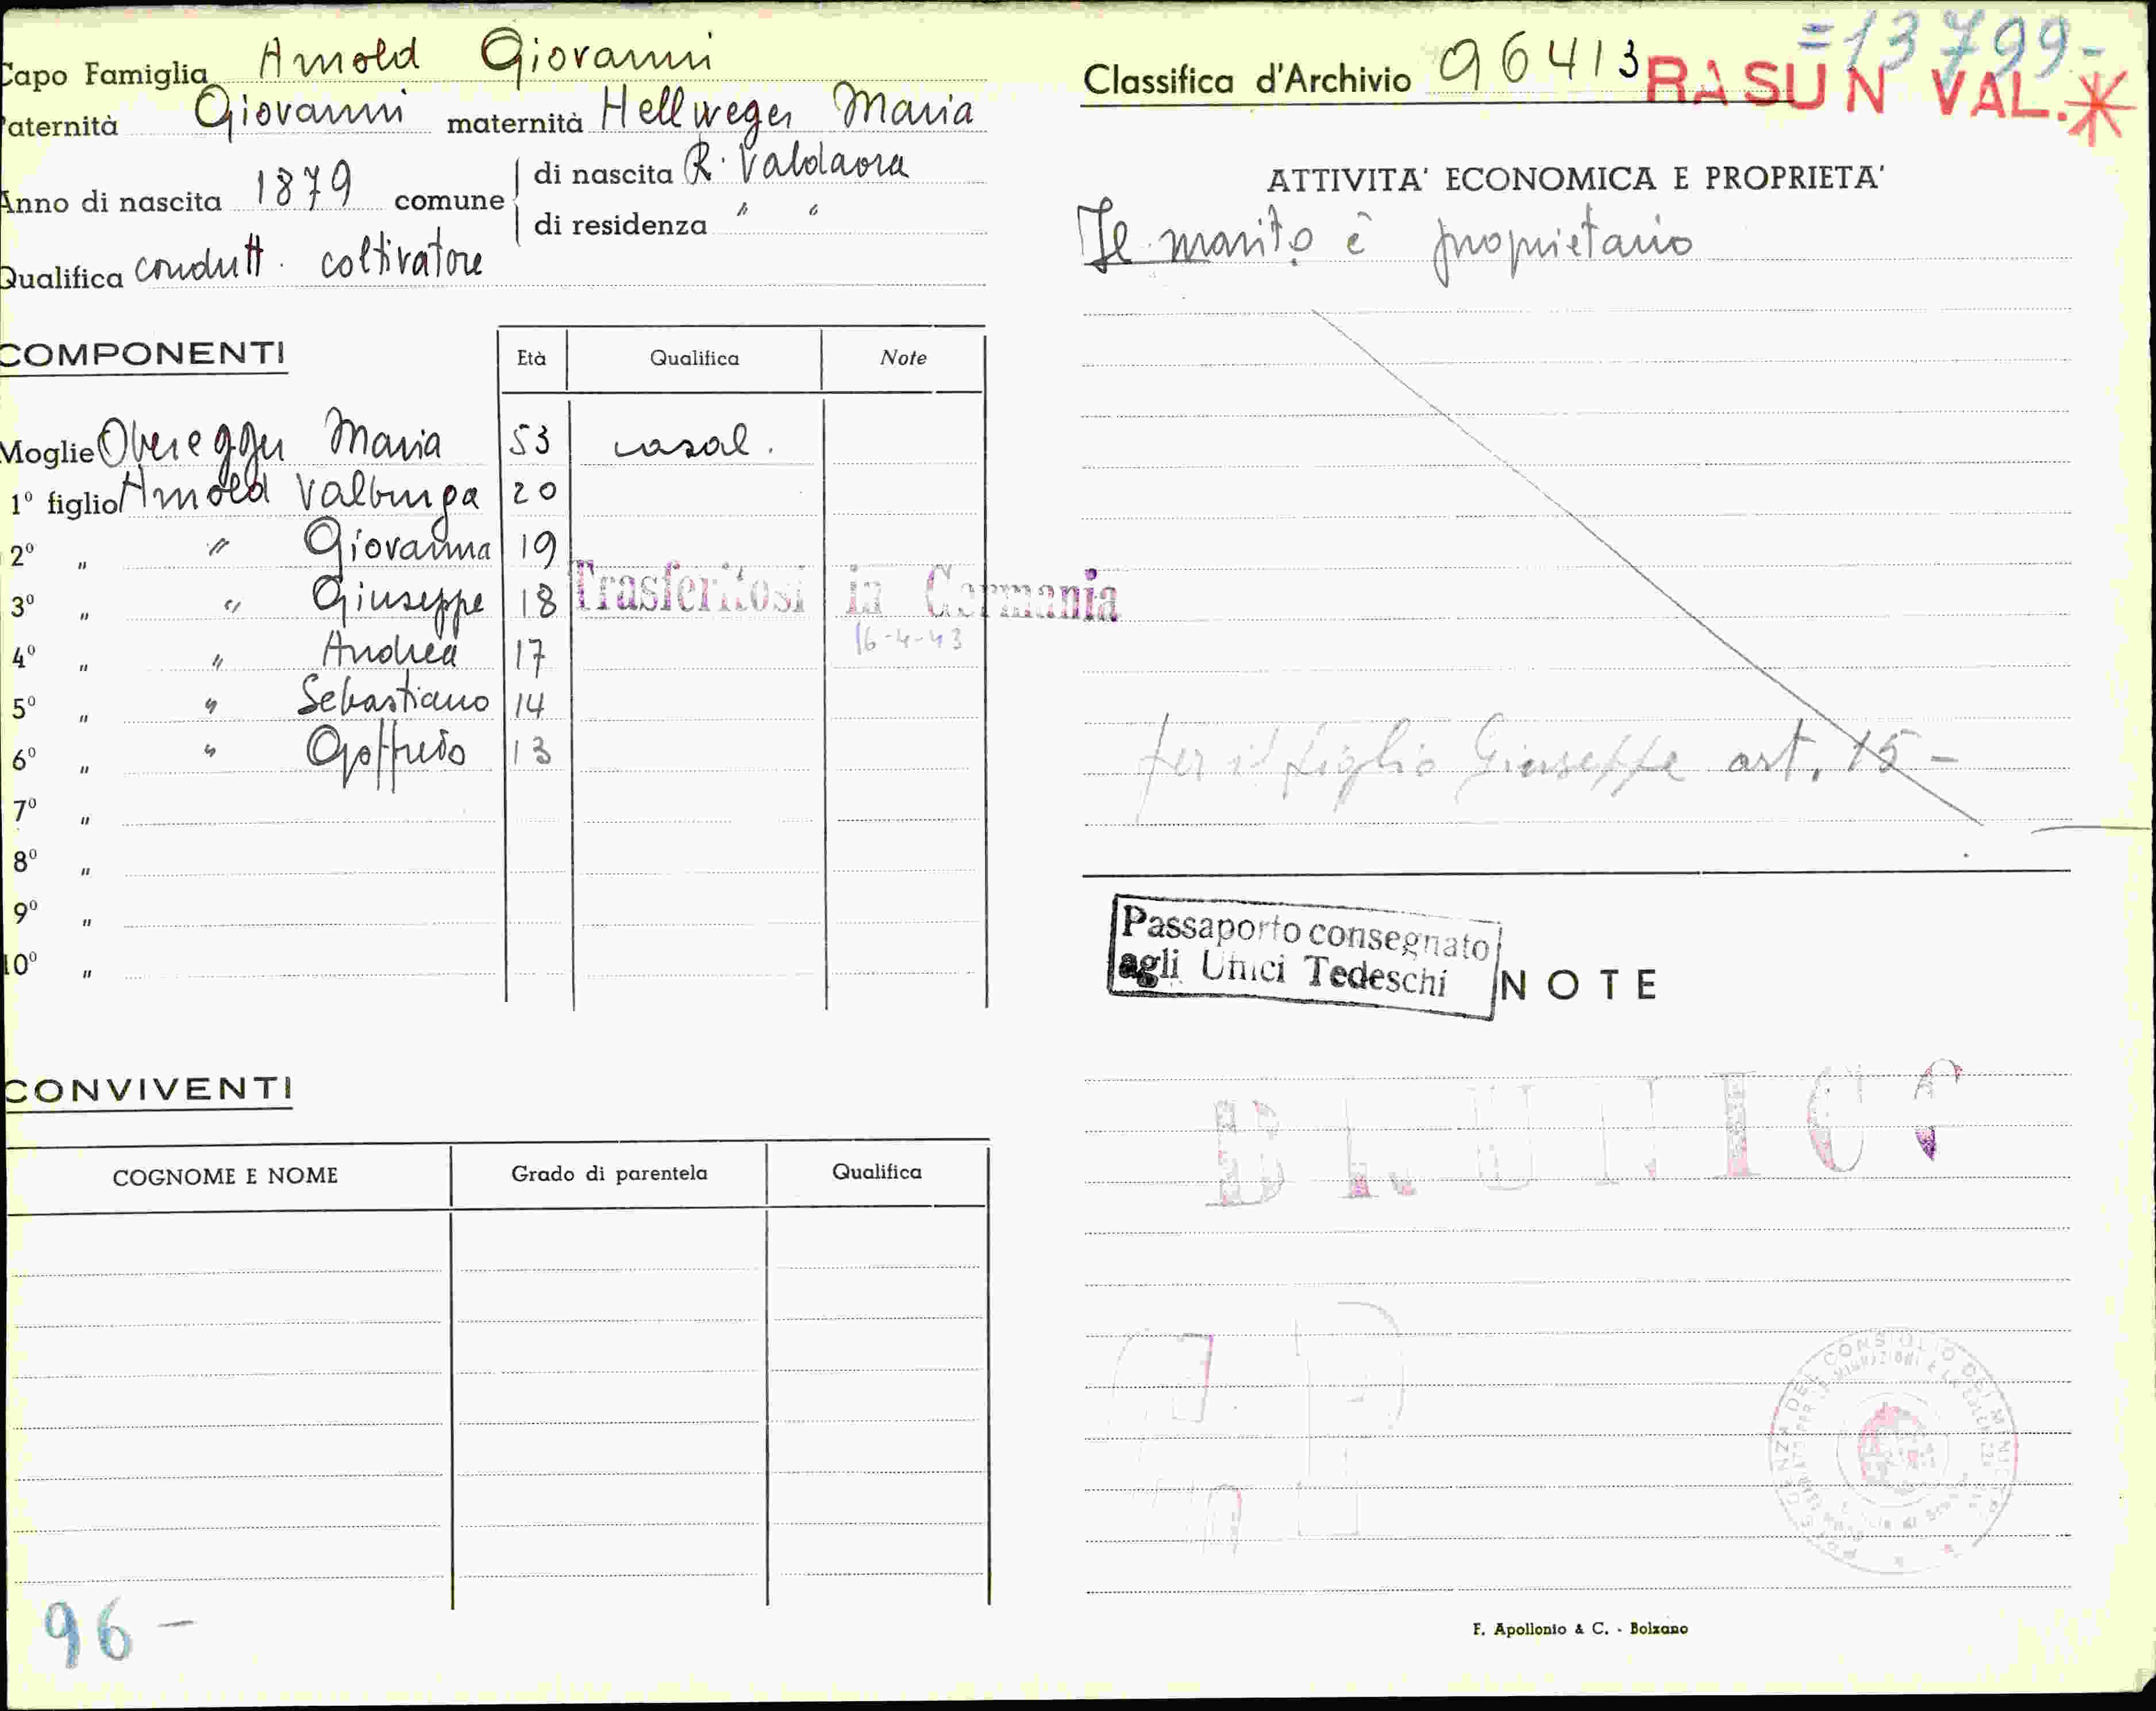 Capo Famiglia Arnold Giovanni
Paternità Giovanni maternità Hellweger Maria
Anno di nascita 1879 comune di nascita R. Valdaora
di residenza " "
Qualifica condutt. coltivatore
COMPONENTI Età Qualifica Note
Moglie Oberegger Maria 53 casal.
1° figlio Arnold Valburga 20
2° " " Giovanna 19
3° " " Giuseppe 18 Trasferitosi in Germania
16-4-43
4° " " Andrea 17
5° " " Sebastiano 14
6° " " Goffredo 13
7° "
8° "
9° "
10° "
CONVIVENTI
COGNOME E NOME Grado di parentela Qualifica
96 -
=13799-
Classifica d'Archivio 96413 RASUN VAL.*
ATTIVITA' ECONOMICA E PROPRIETA'
Il marito è proprietario
per il figlio Giuseppe art. 15 -
Passaporto consegnato
agli Uffici Tedeschi
NOTE
BRUNICO
F. Apollonio & C. - Bolzano